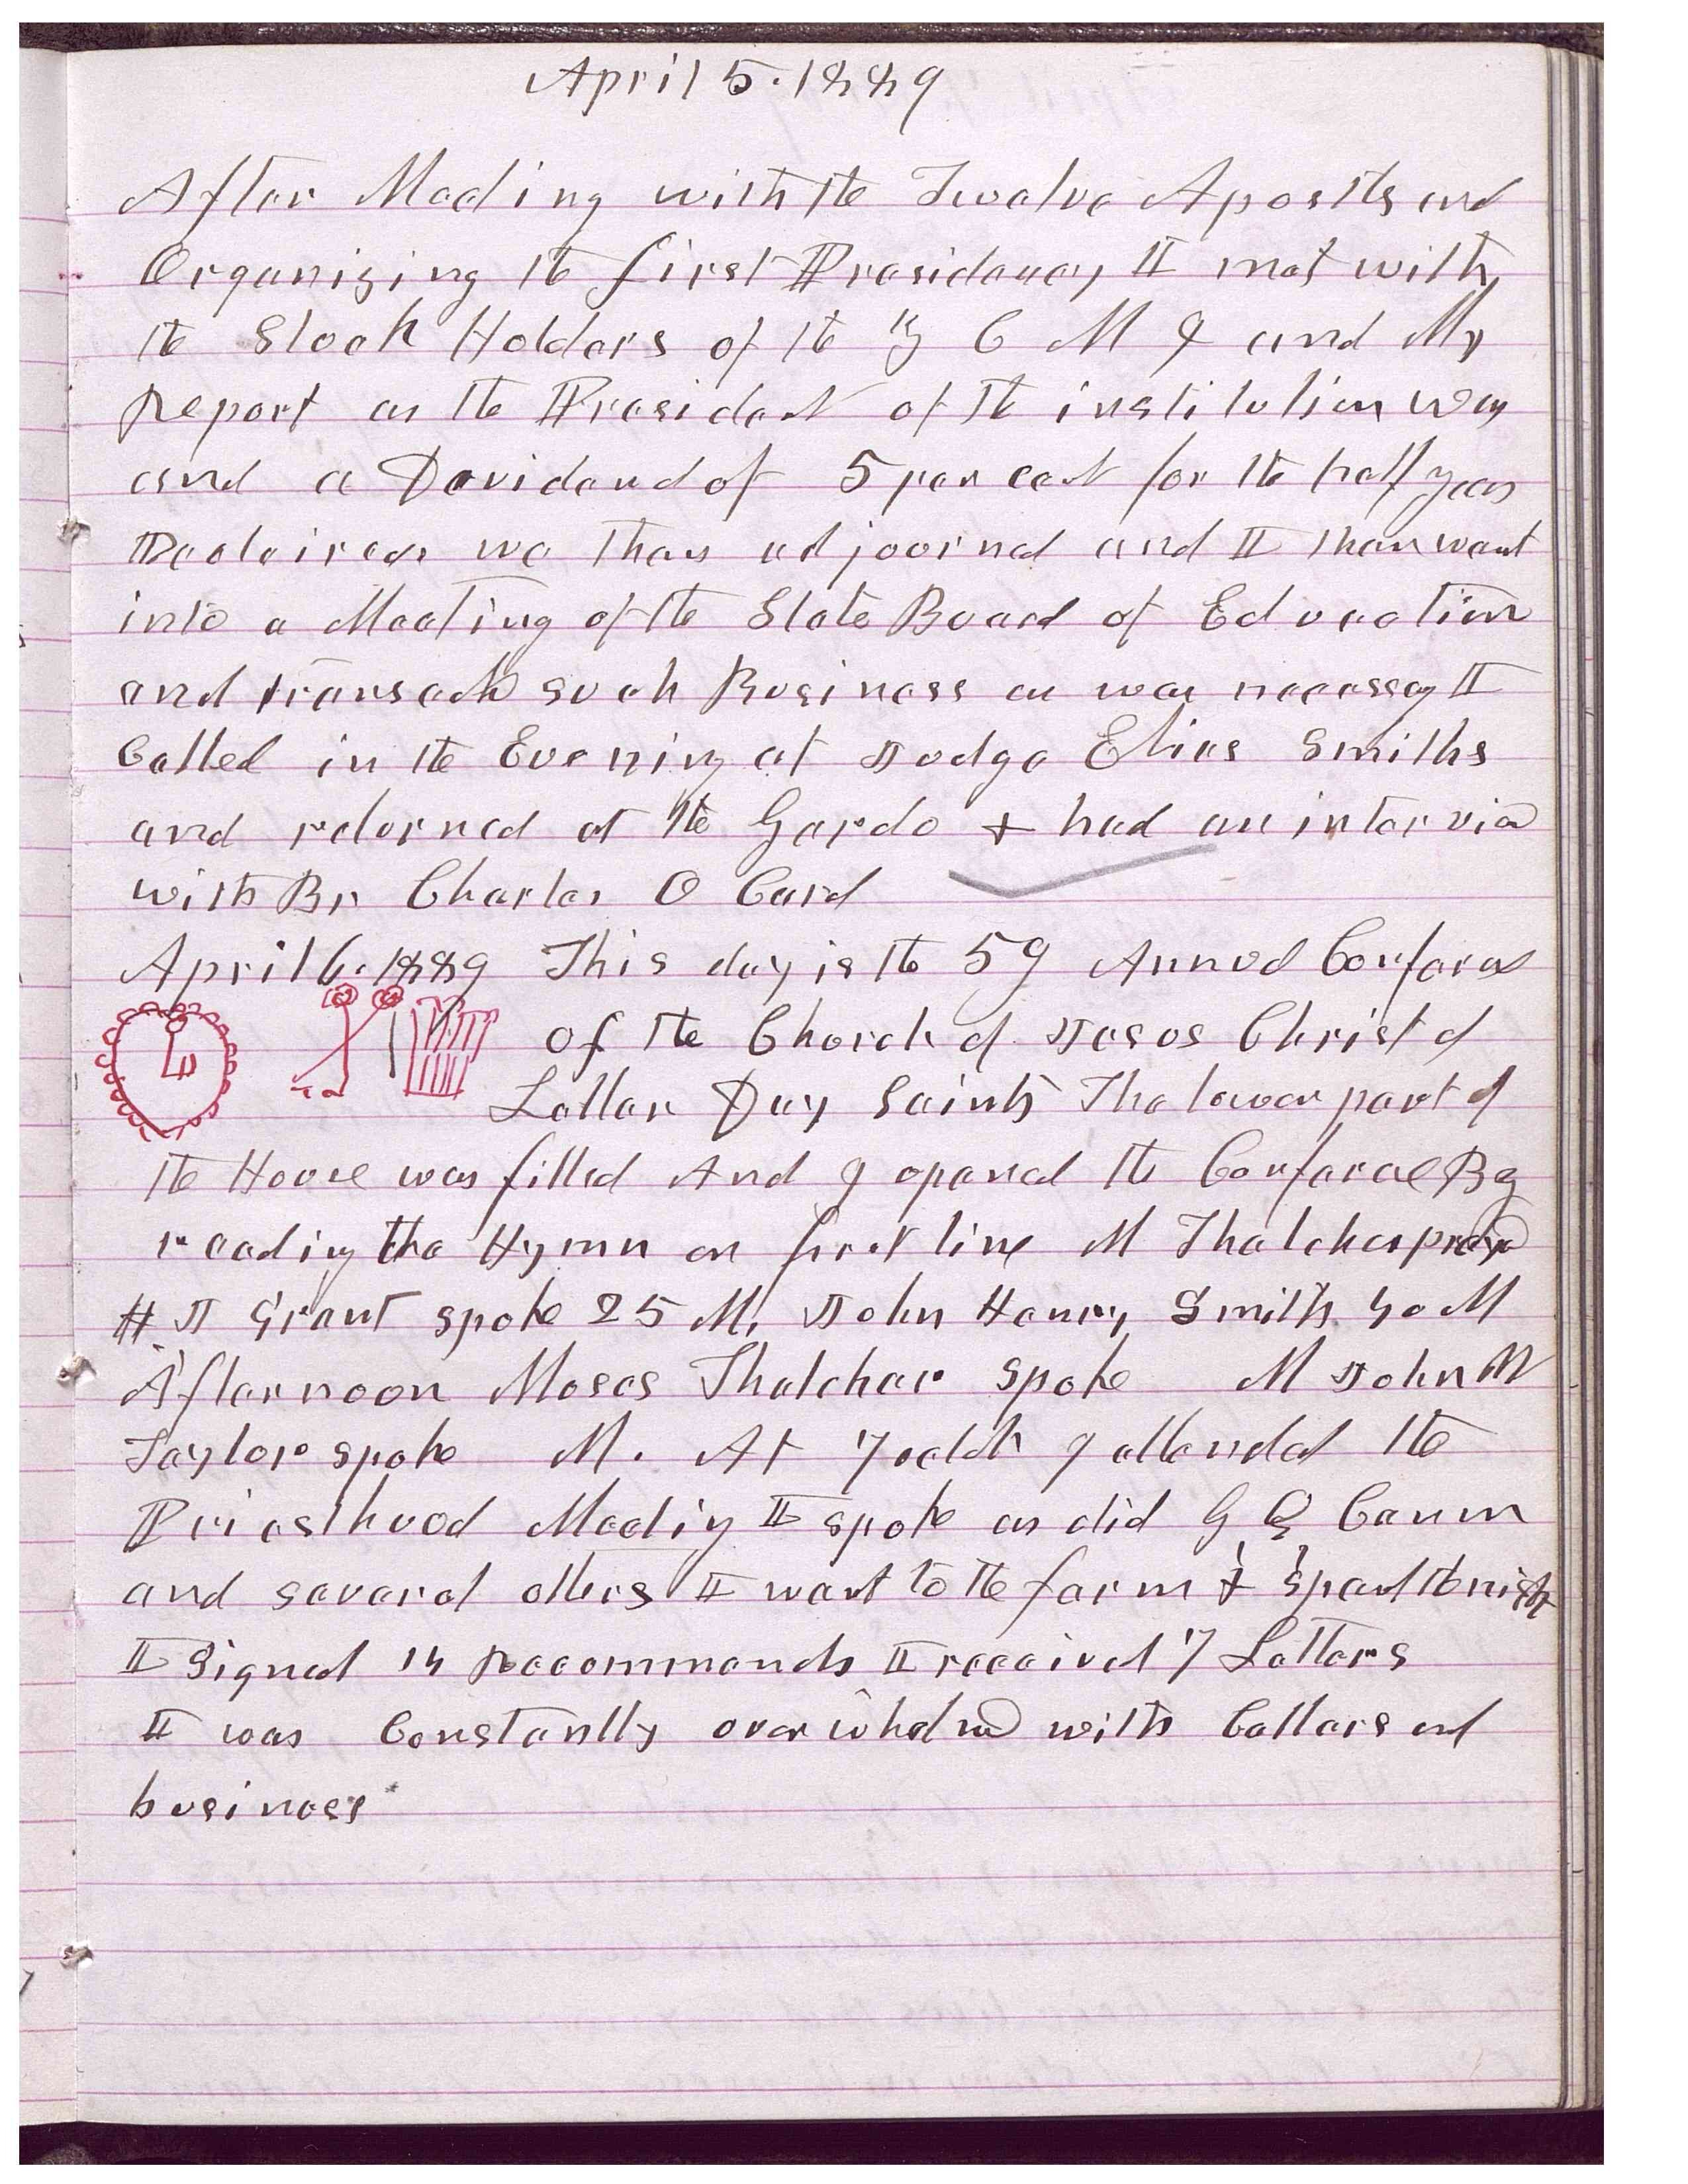 April 5. 1889
After Meeting with the Twelve Apostls and
Organizing the first Presidency I met with
the Stock Holders of the Z C M I and My
report as the President of the institution was
and a Devidend of 5 per cent for the half year
Declaired we then adjourned and I then went
into a Meeting of the State Board of Education
and transacted such Business as was necessary I
Called in the Evening at Judge Elias Smiths
and returned at the Gardo & had an interview
with Br Charles O Card
April 6. 1889 This day is the 59 Annual Conference
of the Church of Jesus Christ of
Latter Day Saints The lower part of
the House was filled And I opened the Conference By
reading the Hymn on first line M Thatcher prayed
H J Grant spoke 25 M, John Henry Smith 40 M
Afternoon Moses Thatcher spoke M John W
Taylor spoke M. At 7 oclok I attended the
Priesthood Meeting I spoke as did G Q Cannon
and several others I went to the farm & spent the night
I Signed 14 Recommends I received 7 Letters
I was Constantly overwhelmed with Callers and
business